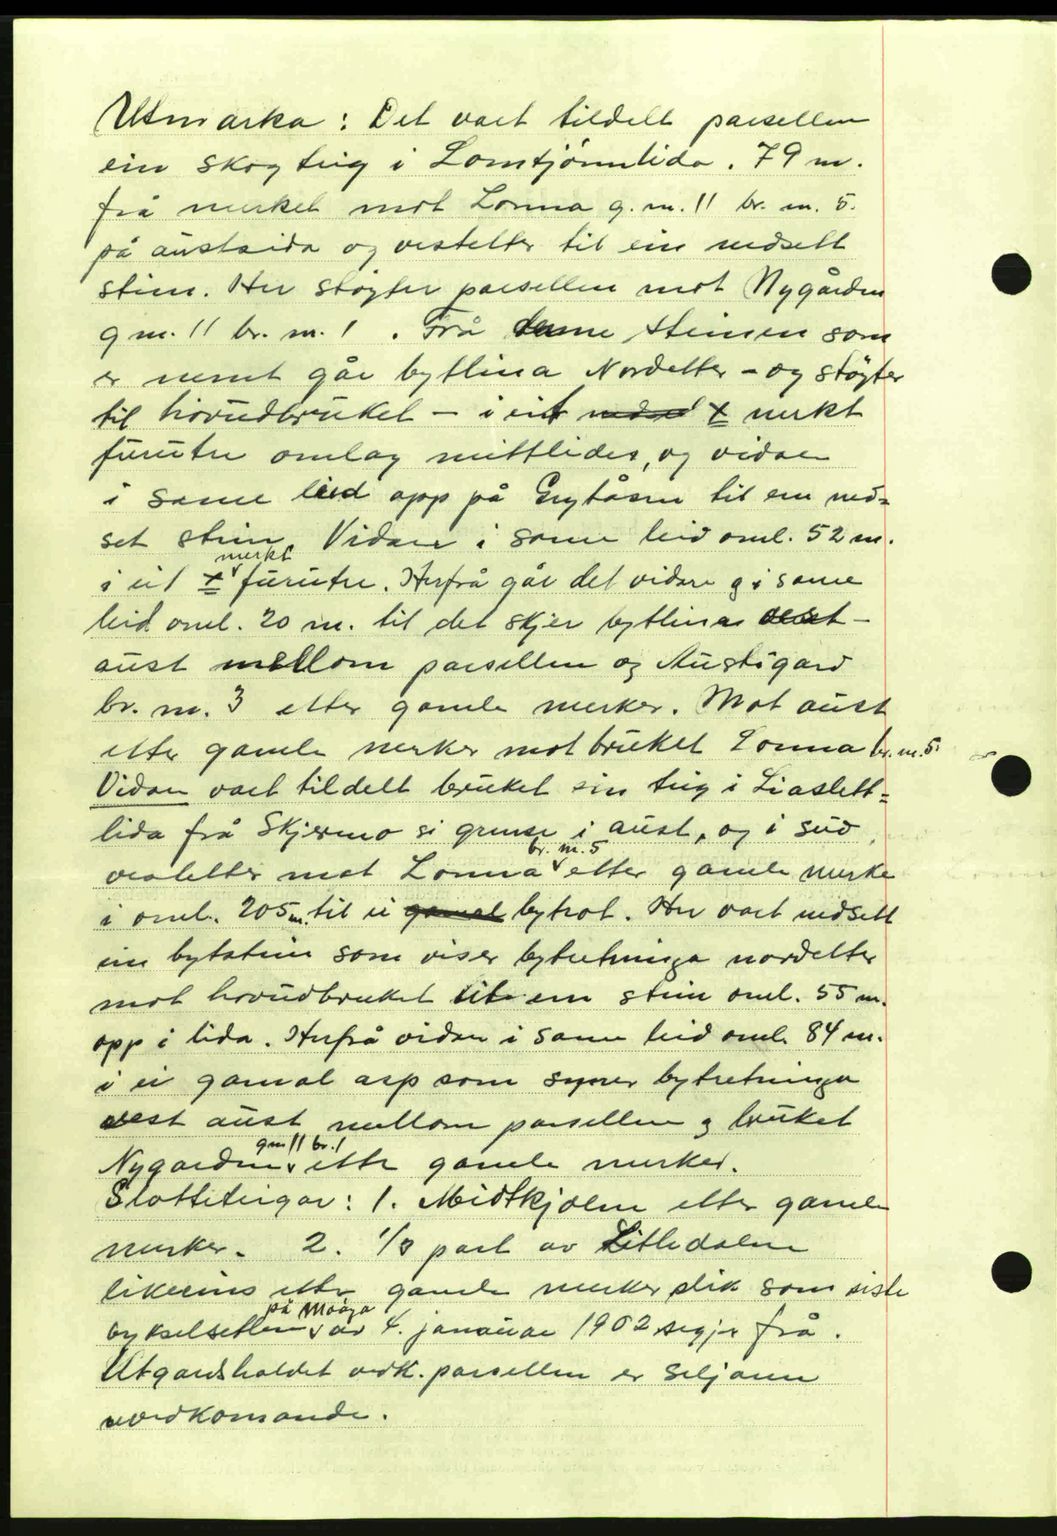 Utmarka: Det vart tildelt parsellen
ein skogteig i Lomtjönnlida. 79 m.
frå merket mot Lonna g. nr. 11 br. nr. 5.
på austsida og vestetter til ein nedsett
stein. Her støyter parsellen mot Nygården
g nr. 11 br. nr. 1. Frå denne steinen som
er nemnt går bytlina Nordetter - og støyter
til hovudbruket - i eit nedsed x merkt
furutre omlag mittlides, og vidare
i same leid opp på Grytåsen til ein ned=
set stein. Vidare i same leid oml. 52 m.
i eit x merkt furutre. Herfrå går det vidare g i same
leid oml. 20 m. til det skjer bytlina vest -
aust mellom parsellen og Austigard
br. nr. 3 etter gamle merker. Mot aust
etter gamle merker mot bruket Lonna br. nr. 5.
Vidare vart tildelt bruket ein teig i Liaslett=
lida frå Skjermo si grense i aust, og i sud,
vestetter mot Lonna br. nr. 5 etter gamle merke
i oml. 205 m. til ei gamal bytrot. Her vart nedsett
ein bytstein som viser bytretninga nordetter
mot hovudbruket til ein stein oml. 55 m.
opp i lida. Herfrå vidare i same leid oml. 84 m.
i ei gamal asp som syner bytretninga
vest aust mellom parsellen g bruket
Nygarden gnr 11 br. 1 etter gamle merker.
Slåtteteigar: 1. Midtkjølen etter gamle
merker. 2. 1/3 part av Litledalen
likeeins etter gamle merker slik som siste
bykselsetlen på Moåga av 4. januar 1902 segjer frå.
Utgardshaldet vedk. parsellen er seljaren
uvedkomande.